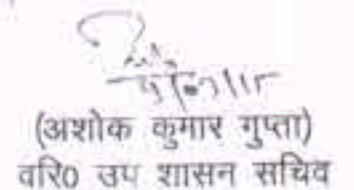 (अशोक कुमार गुप्ता)
वरि0 उप शासन सचिव